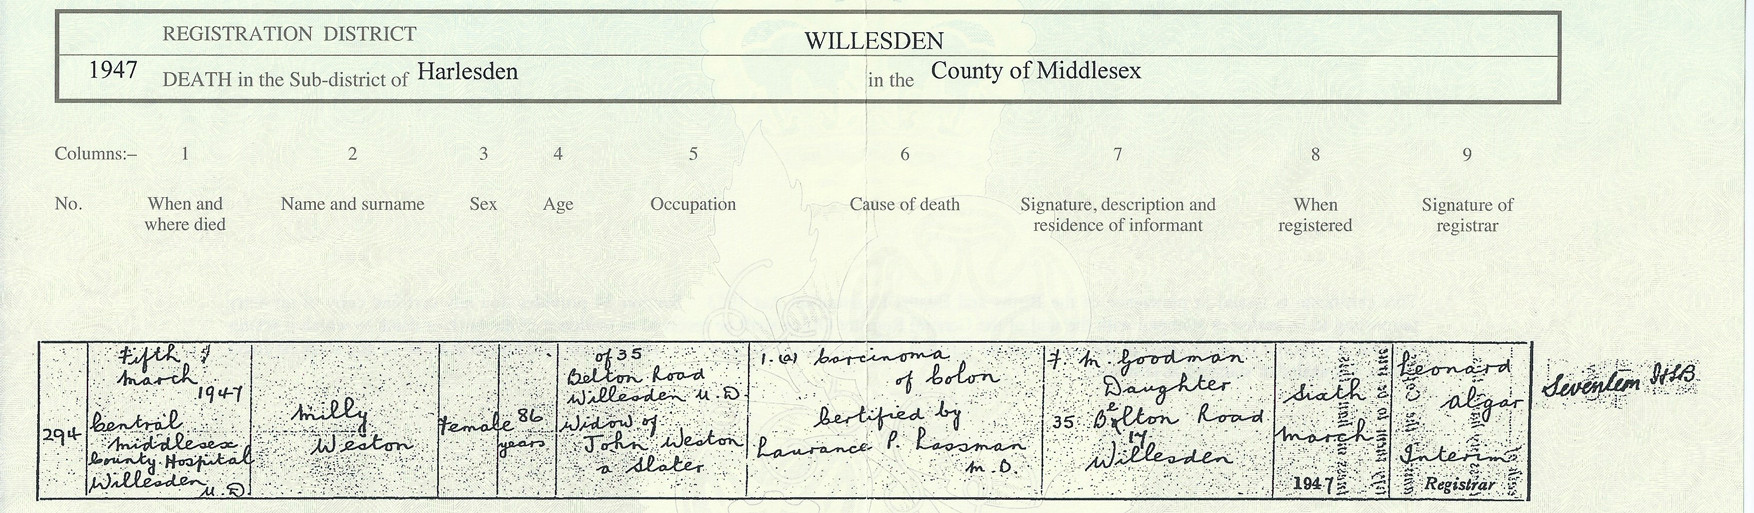 REGISTRATION DISTRICT WILLESDEN
1947 DEATH in the Sub-district of Harlesden in the County of Middlesex
Columns:– 1 2 3 4 5 6 7 8 9
No. When and where died Name and surname Sex Age Occupation Cause of death Signature, description and residence of informant When registered Signature of registrar
294
Fifth
March
1947
Central
Middlesex
County Hospital
Willesden
U.D.
Milly
Weston
Female
86
years
of 35
Belton Road
Willesden U.D.
Widow of
John Weston
a Slater
1.(a) Carcinoma
of Colon
Certified by
Laurance P. Lassman
M.D.
F. M. Goodman
Daughter
35 Belton Road
17
Willesden
Sixth
March
1947
Leonard
Algar
Interim
Registrar
Seventeen